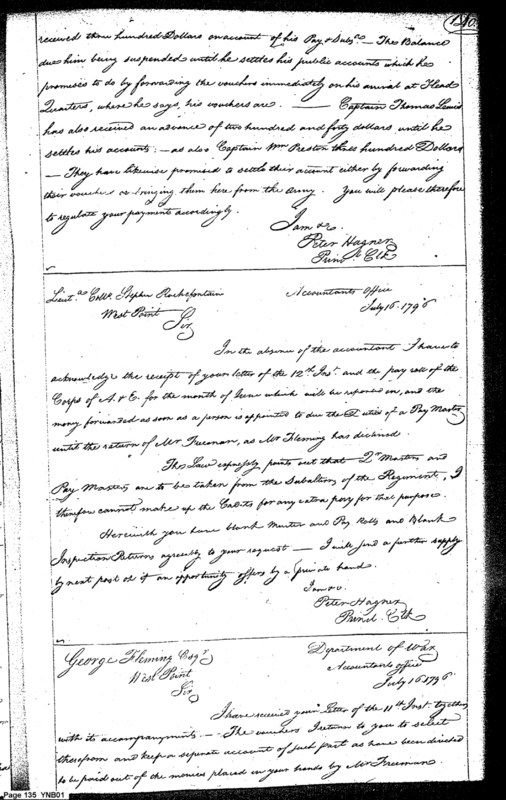 140
received three hundred Dollars on account of his Pay & Subs.ce — The Balance
due him being suspended until he settles his public accounts which he
promises to do by forwarding the vouchers immediately on his arrival at Head
Quarters, where he says, his vouchers are. — Captain Thomas Lewis
has also received an advance of two hundred and forty dollars until he
settles his accounts. — as also Captain Wm. Preston three hundred Dollars
— They have likewise promised to settle their account either by forwarding
their vouchers or bringing them here from the army. You will please therefore
to regulate your payments accordingly.
I am &c.
Peter Hagner
Prinl. Clk
Lieut. Collo. Stephen Rochefontain
West Point
Accountants Office
July 16. 1796
Sir,
In the absence of the accountant I have to
acknowledge the receipt of your letter of the 12th. Inst. and the pay roll of the
Corps of A. & E. for the month of June which will be reported on, and the
money forwarded as soon as a person is appointed to due the Duties of a Pay Master
until the return of Mr. Freeman, as Mr Fleming has declined.
The Law expressly points out that Qr Masters and
Pay Masters are to be taken from the Subalterns of the Regiment, I
therefore cannot make up the Cadets for any extra pay for that purpose.
Herewith you have blank Muster and Pay Rolls and Blank
Inspection Returns agreeably to your request — I will send a further supply
by next post or if an opportunity offers by a private hand.
I am &c.
Peter Hagner
Prinl. Clk
George Fleming Esqr.
West Point
Department of War
Accountants office
July 16 1796
Sir,
I have received your Letter of the 11th Inst. together
with its accompanyments — The vouchers I return to you to select
therefrom and keep a seperate account of such part as have been directed
to be paid out of the monies placed in your hands by Mr Freeman
Page 135 YNB01